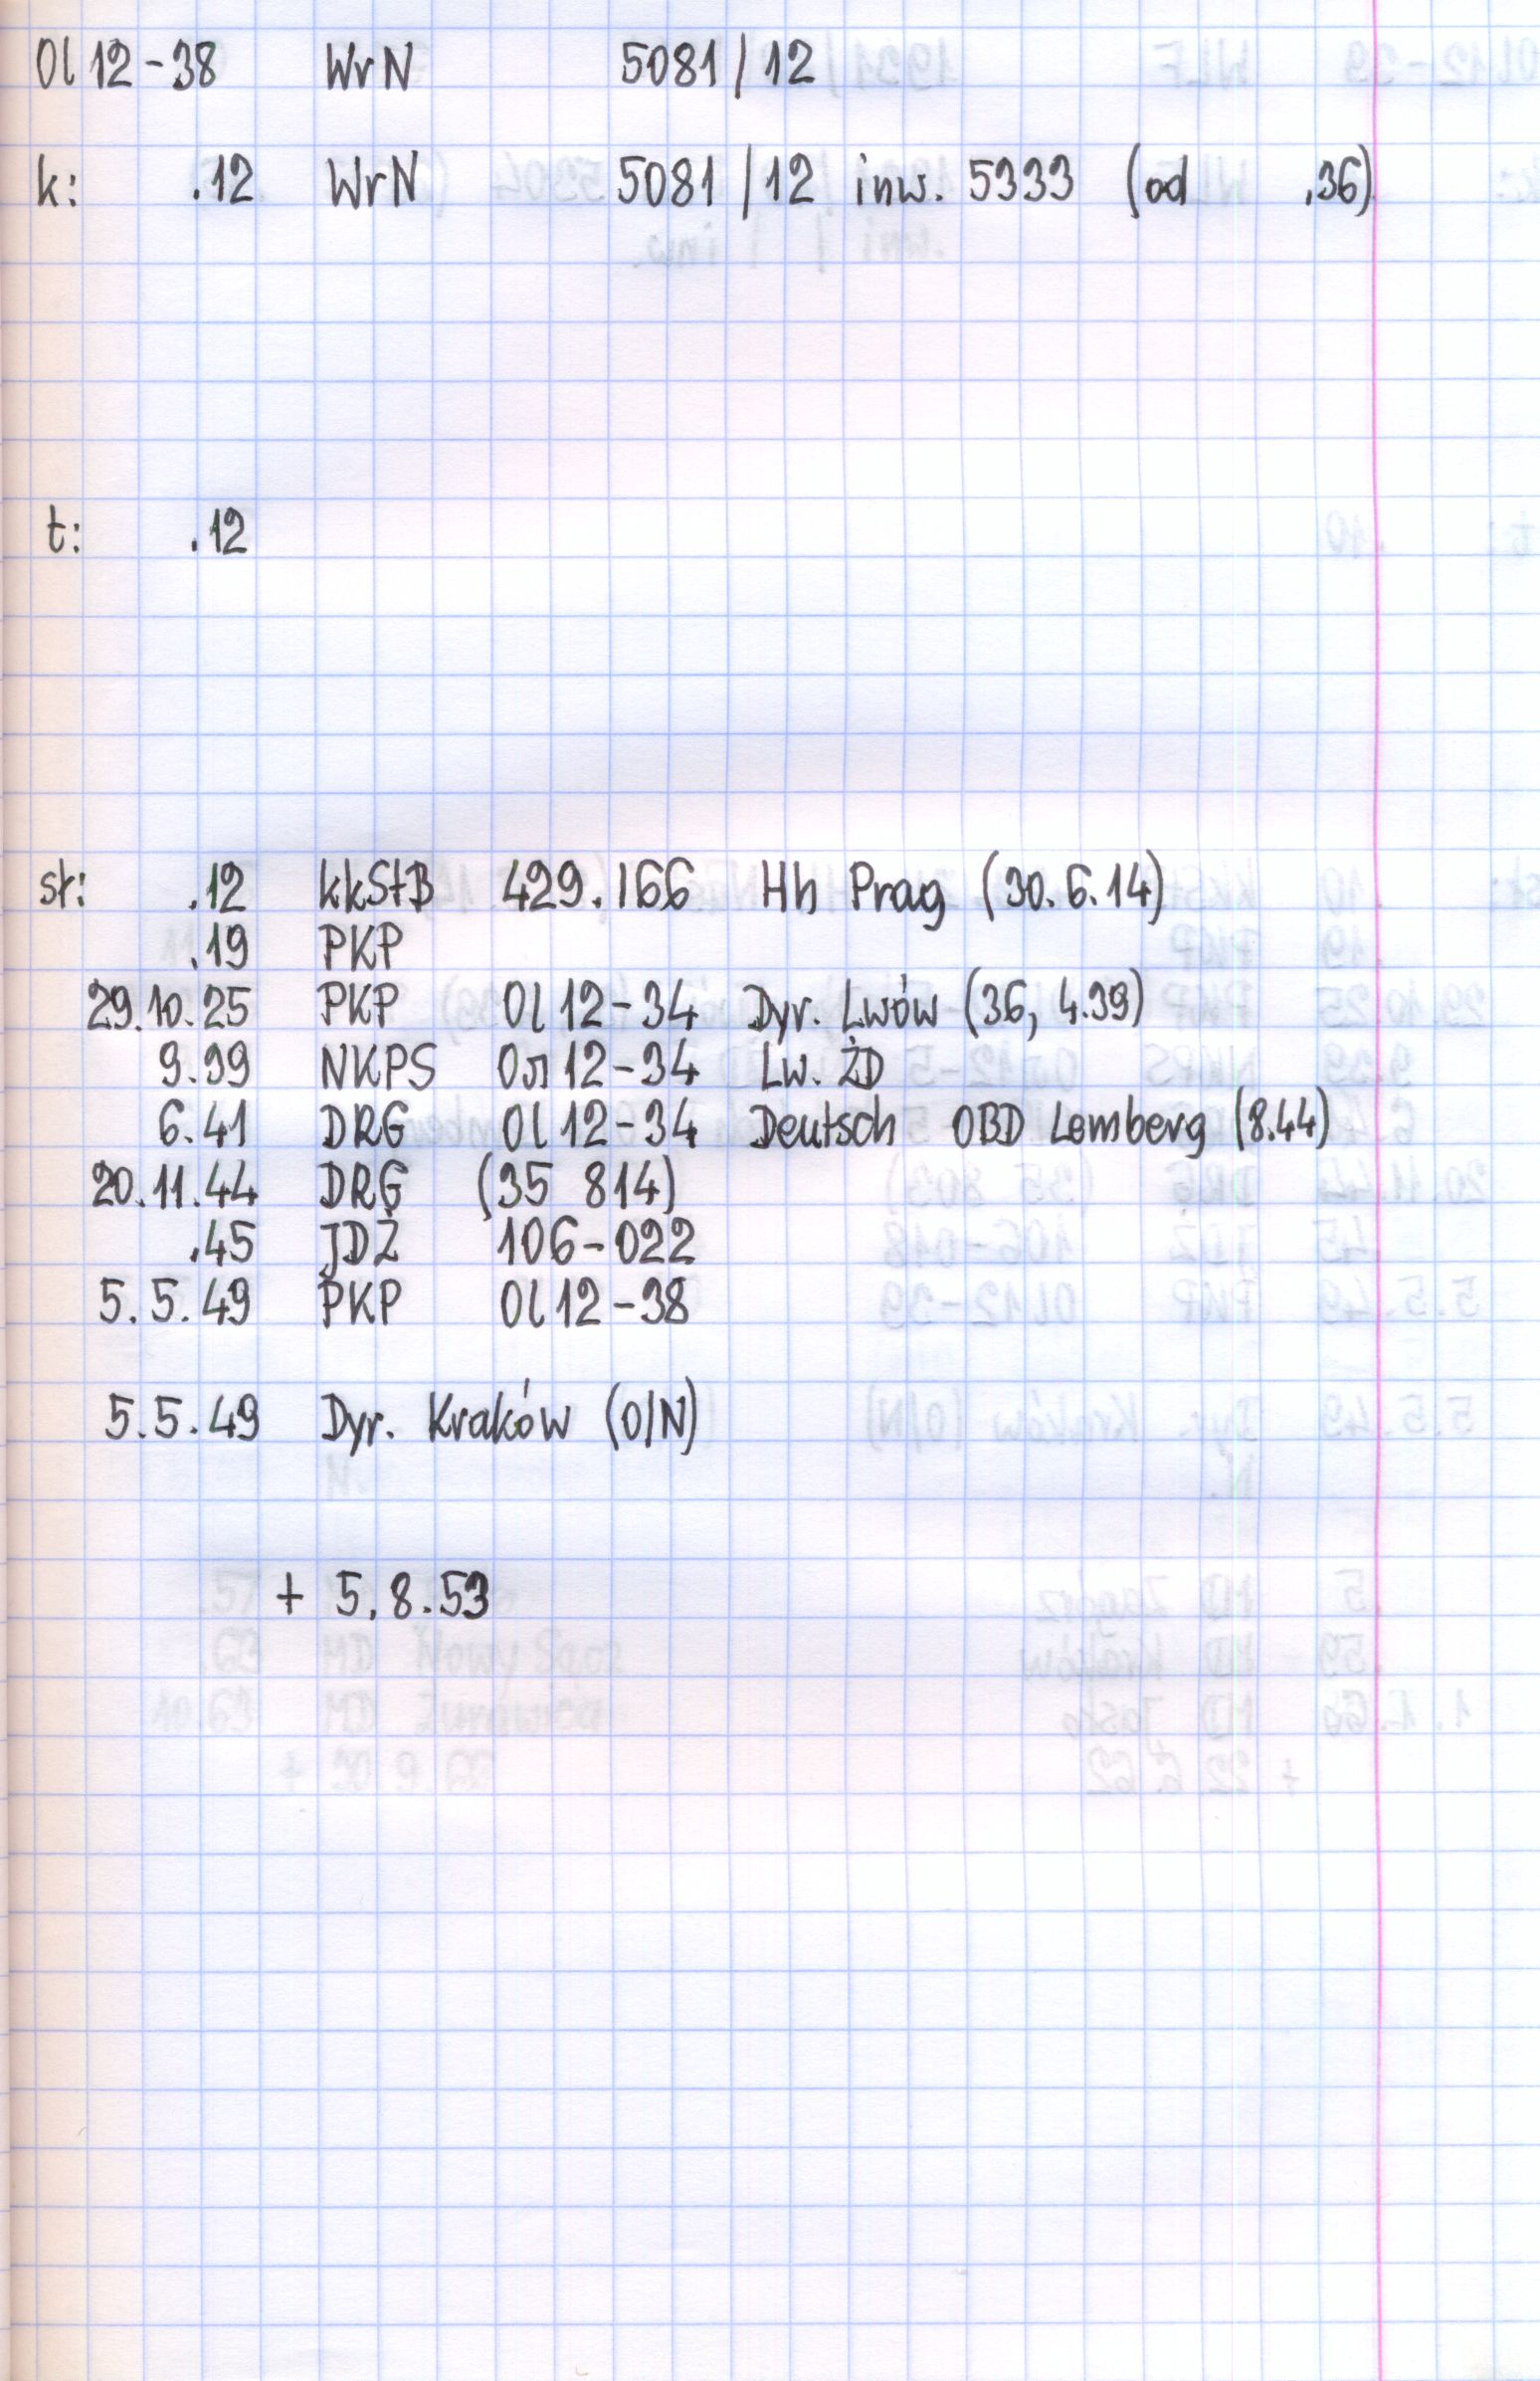 Ol 12-38 WrN 5081/12
k: .12 WrN 5081/12 inw. 5333 (od .36)
t: .12
st: .12 kkStB 429.166 Hh Prag (30.6.14)
.19 PKP
29.10.25 PKP Ol 12-34 Dyr. Lwów (36, 4.39)
9.39 NKPS Ол 12-34 Lw. ŻD
6.41 DRG Ol 12-34 Deutsch OBD Lemberg (8.44)
20.11.44 DRG (35 814)
.45 JDŻ 106-022
5.5.49 PKP Ol 12-38
5.5.49 Dyr. Kraków (O/N)
+ 5.8.53